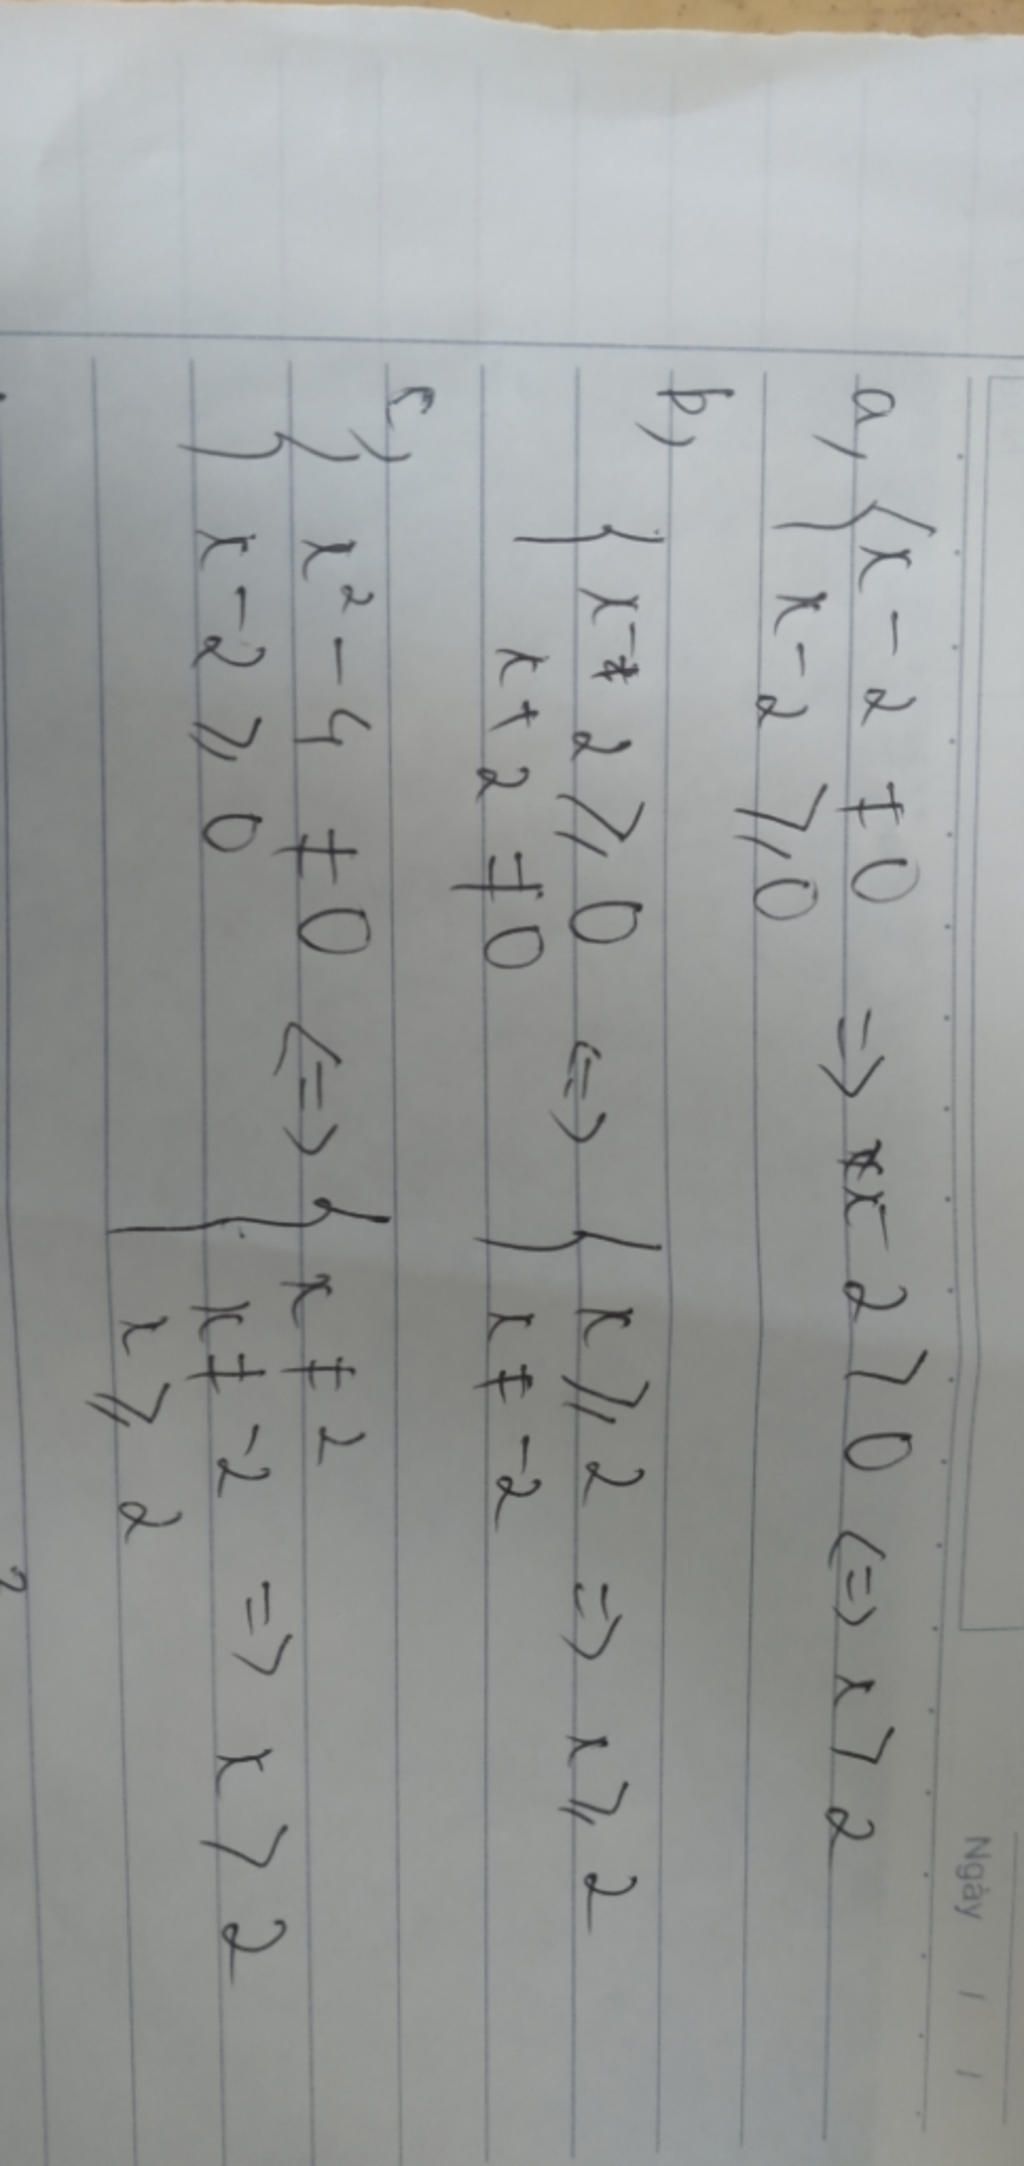 Ngày / /
a, { x - 2 ≠ 0 => x - 2 > 0 <=> x > 2
x - 2 ⩾ 0
b, { x - 2 ⩾ 0 <=> { x ⩾ 2 => x ⩾ 2
x + 2 ≠ 0 x ≠ -2
c, { x² - 4 ≠ 0 <=> { x ≠ 2
x - 2 ⩾ 0 x ≠ -2 => x > 2
x ⩾ 2